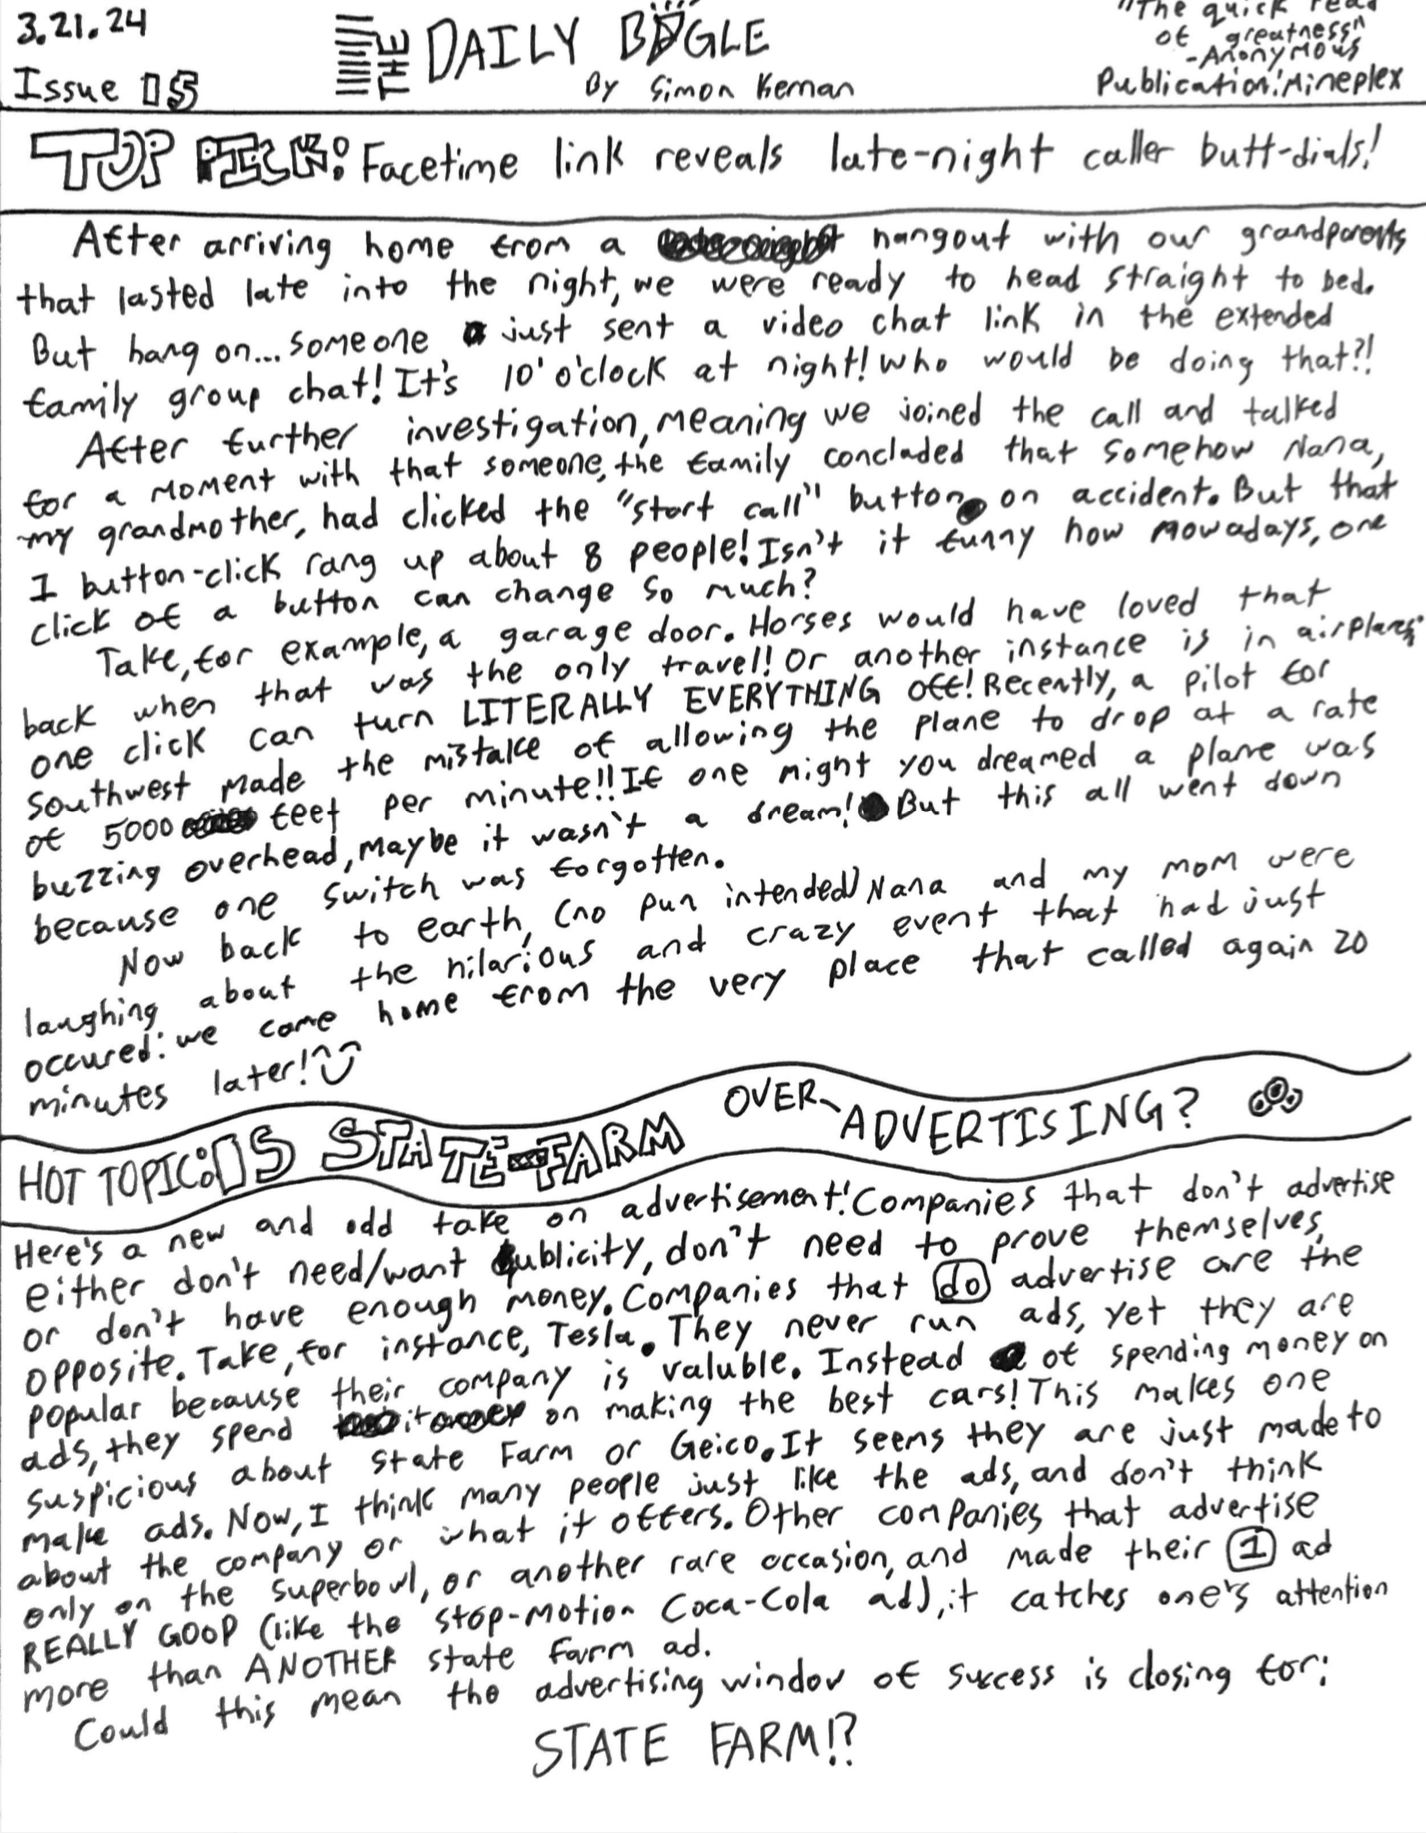 3.21.24
Issue 15
THE DAILY BUGLE
By Simon Keman
"The quick read
of greatness"
-Anonymous
Publication: Mineplex
TOP PICK: Facetime link reveals late-night caller butt-dials!
After arriving home from a hangout with our grandparents
that lasted late into the night, we were ready to head straight to bed.
But hang on... someone just sent a video chat link in the extended
family group chat! It's 10' o'clock at night! Who would be doing that?!
After further investigation, meaning we joined the call and talked
for a moment with that someone, the family concluded that somehow Nana,
my grandmother, had clicked the "start call" button on accident. But that
1 button-click rang up about 8 people! Isn't it funny how nowadays, one
click of a button can change so much?
Take, for example, a garage door. Horses would have loved that
back when that was the only travel! Or another instance is in airplanes:
one click can turn LITERALLY EVERYTHING off! Recently, a pilot for
Southwest made the mistake of allowing the plane to drop at a rate
of 5000 feet per minute!! If one night you dreamed a plane was
buzzing overhead, maybe it wasn't a dream! But this all went down
because one switch was forgotten.
Now back to earth, (no pun intended) Nana and my mom were
laughing about the hilarious and crazy event that had just
occured: we came home from the very place that called again 20
minutes later!
HOT TOPIC: IS STATE-FARM OVER-ADVERTISING?
Here's a new and odd take on advertisement! Companies that don't advertise
either don't need/want publicity, don't need to prove themselves,
or don't have enough money. Companies that do advertise are the
opposite. Take, for instance, Tesla. They never run ads, yet they are
popular because their company is valuble. Instead of spending money on
ads, they spend it on making the best cars! This makes one
suspicious about State Farm or Geico. It seems they are just made to
make ads. Now, I think many people just like the ads, and don't think
about the company or what it offers. Other companies that advertise
only on the superbowl, or another rare occasion, and made their 1 ad
REALLY GOOD (like the stop-motion Coca-Cola ad), it catches one's attention
more than ANOTHER state farm ad.
Could this mean the advertising window of success is closing for:
STATE FARM!?